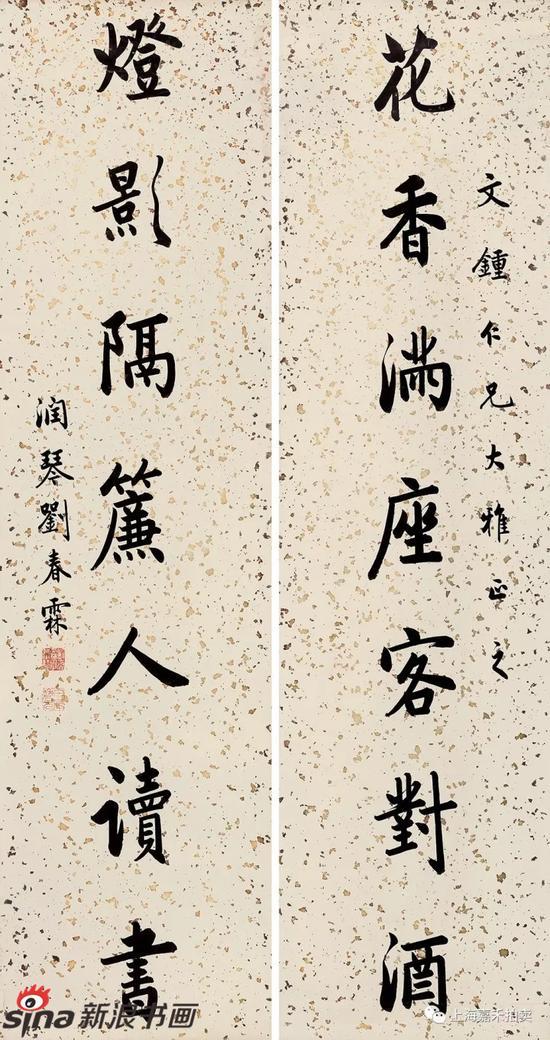 文鍾仁兄大雅正之
花香满座客對酒
燈影隔簾人讀書
润琴劉春霖
sina新浪书画
上海嘉禾拍卖